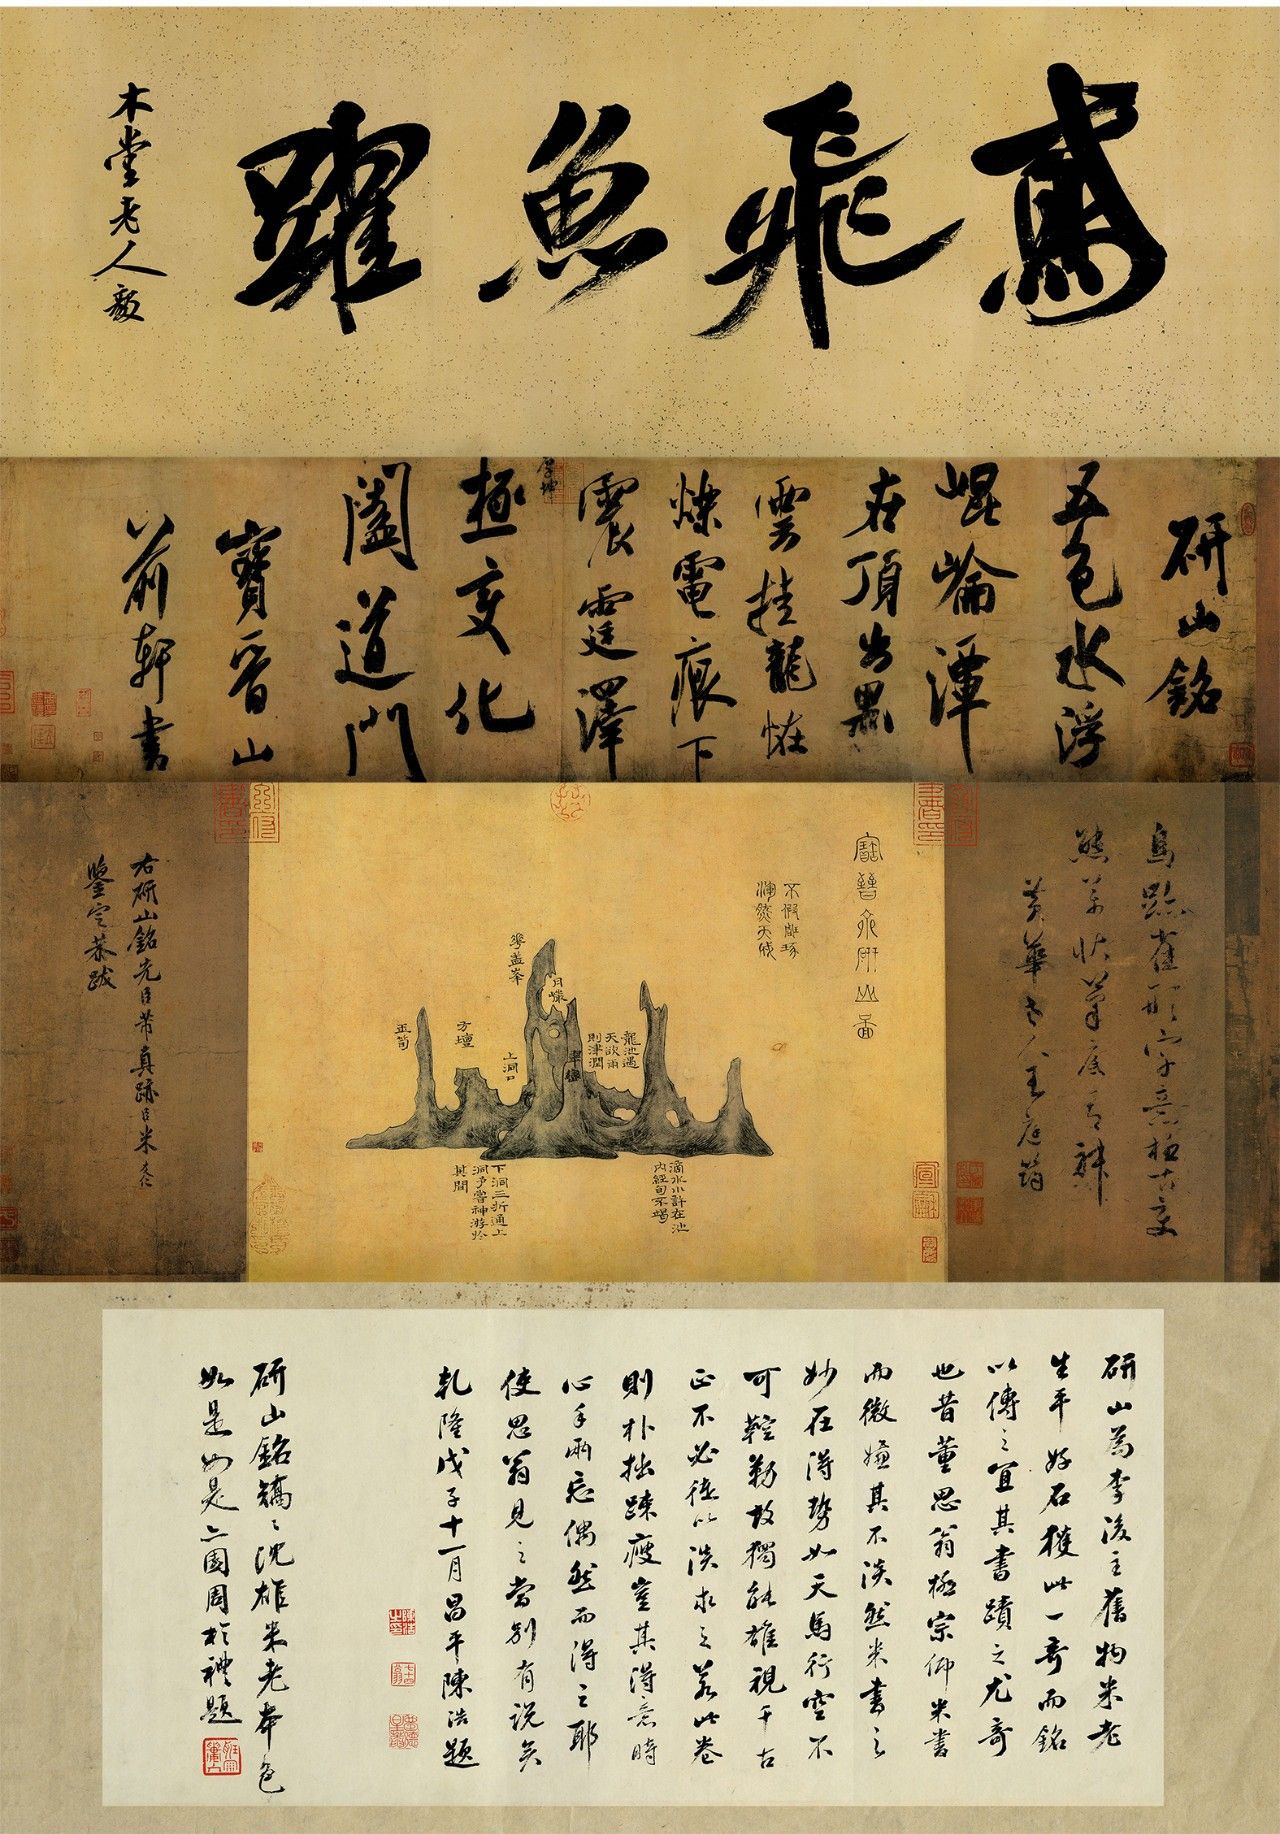 鳶飛魚躍
木堂老人毅
研山銘
五色水浮
崐崘潭
在頂出黑
雲挂龍怪
爍電痕下
震霆澤
厚坤
極變化
闔道門
寶晉山
前軒書
鳥跡雀形字意極古變
態萬狀筆底有神
黃華老人王庭筠
寶晉齋研山圖
不假雕琢
渾然天成
華蓋峯
月巖
方壇
玉筍
上洞口
翠巒
龍池遇
天欲雨
則津潤
下洞三折通上
洞予嘗神游於
其間
滴水小許在池
內經旬不竭
右研山銘先臣芾真跡臣米友仁
鑒定恭跋
研山為李後主舊物米老
生平好石獲此一奇而銘
以傳之宜其書蹟之尤奇
也昔董思翁極宗仰米書
而微嫌其不淡然米書之
妙在得勢如天馬行空不
可鞚勒故獨能雄視千古
正不必徒以淡求之若此卷
則朴拙疎瘦豈其得意時
心手兩忘偶然而得之耶
使思翁見之當別有說矣
乾隆戊子十一月昌平陳浩題
研山銘矯々沈雄米老本色
如是如是二園周於禮題